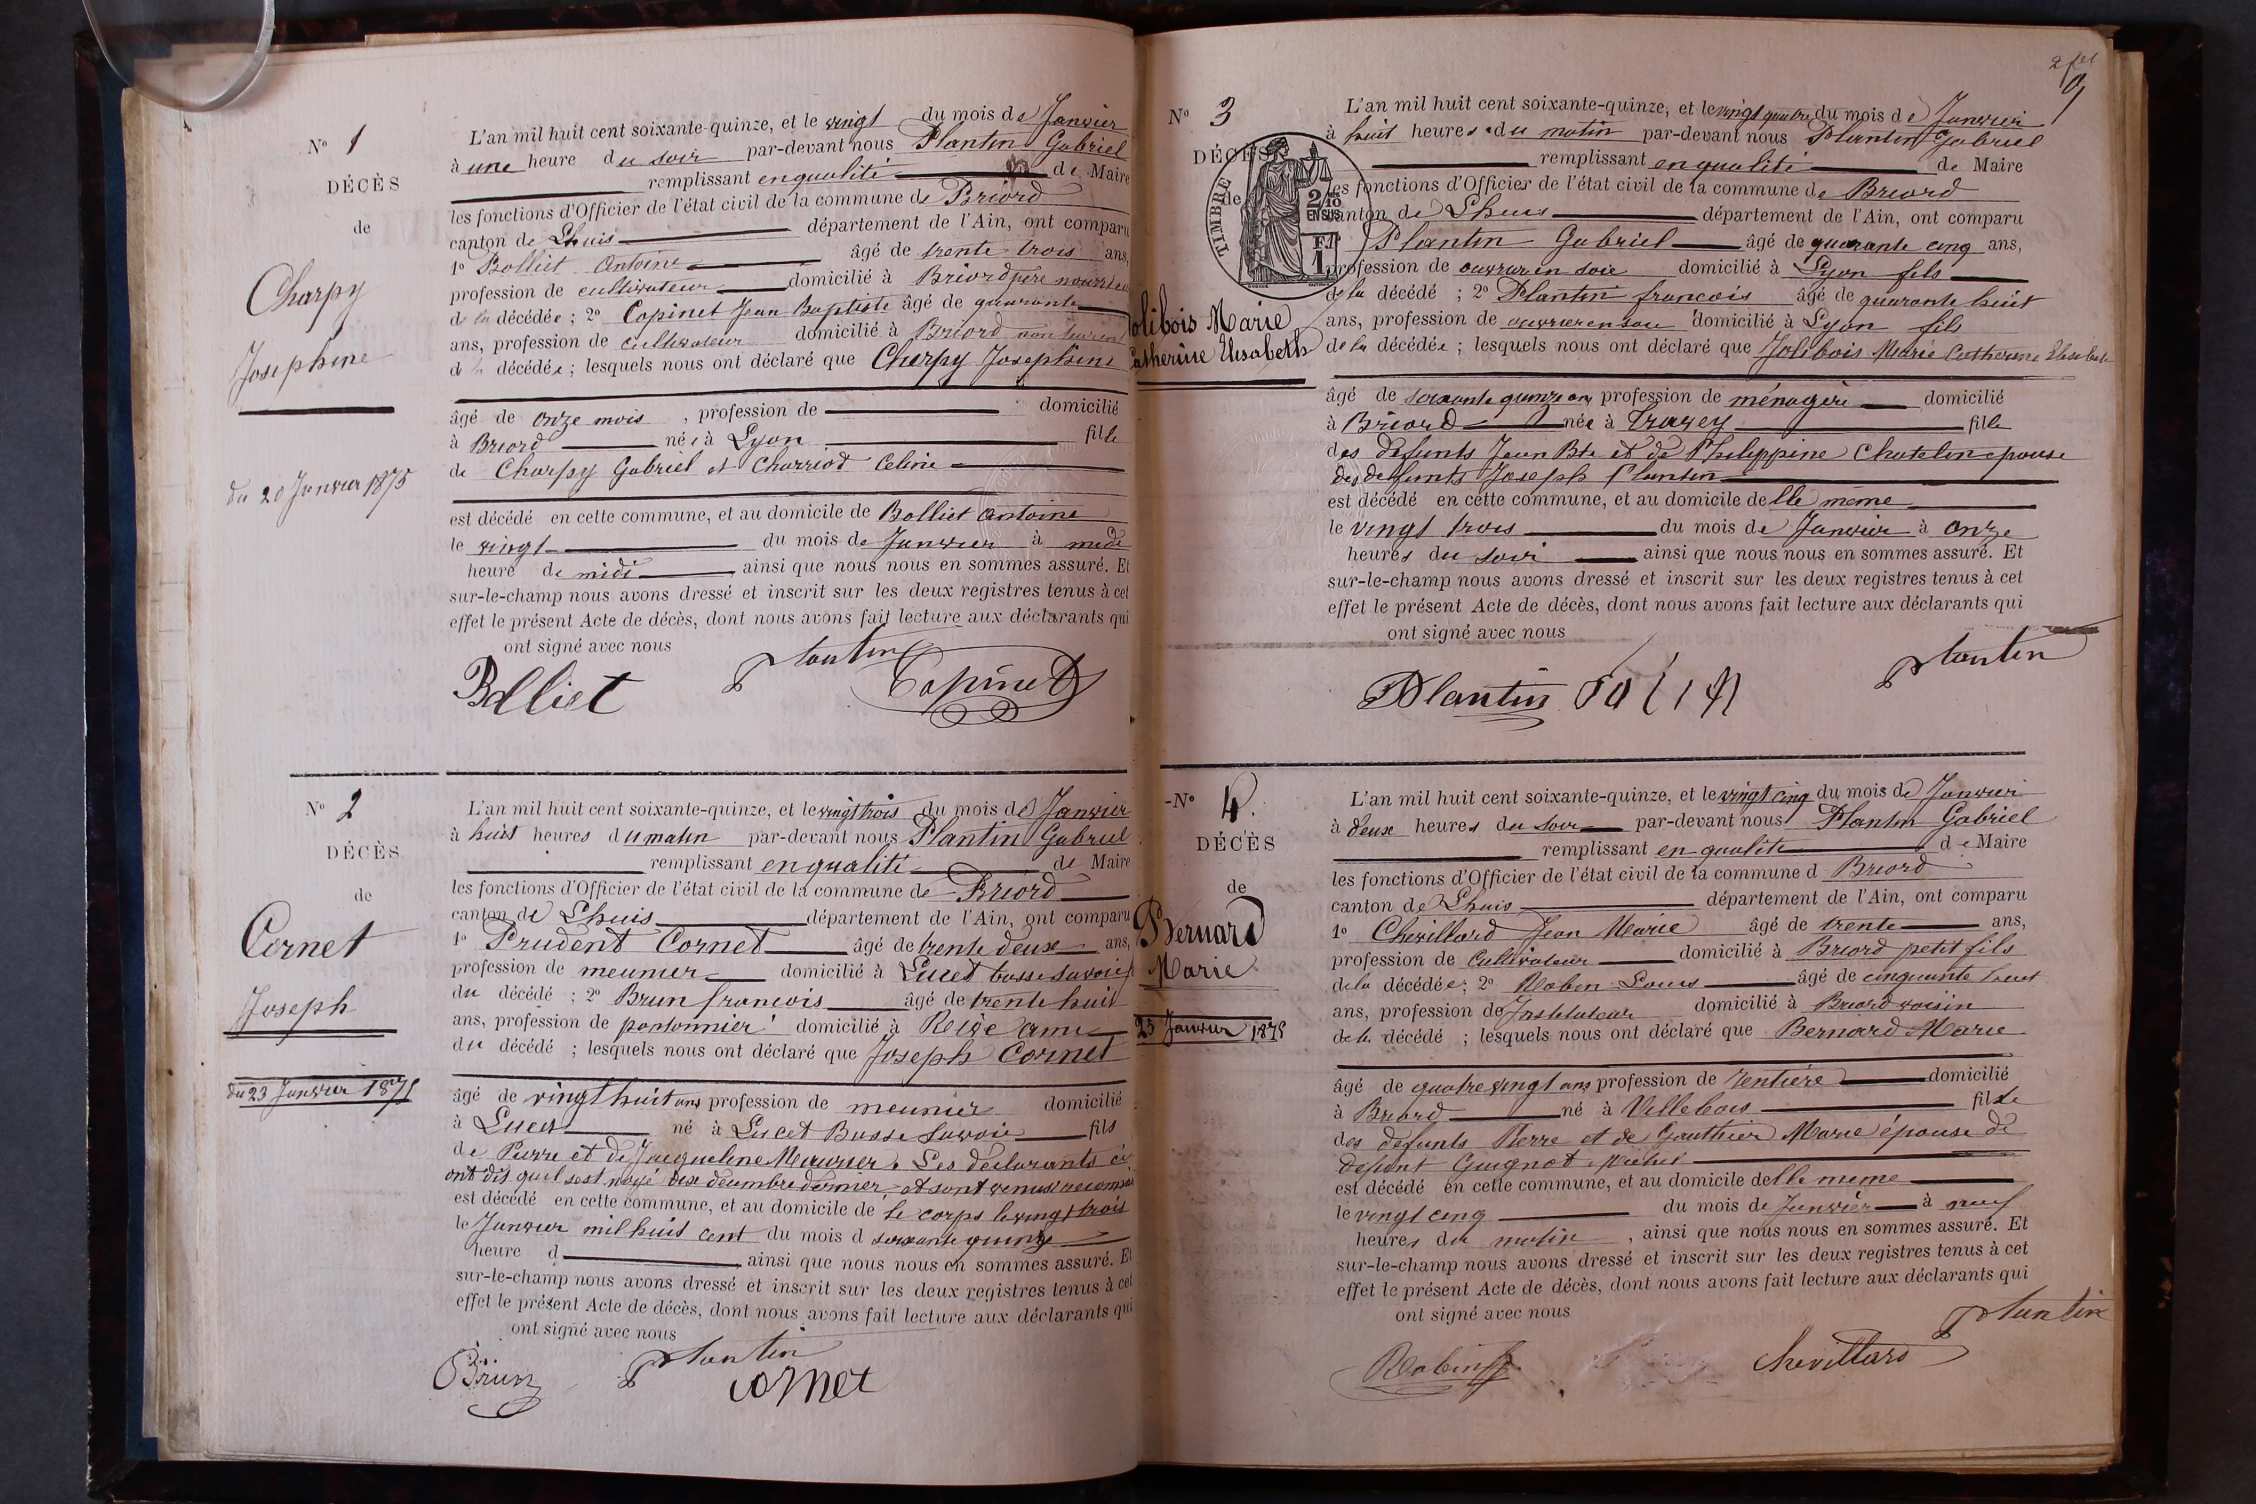 N° 1
DÉCÈS
de
Charpy
Josephine
du 20 Janvier 1875
L'an mil huit cent soixante-quinze, et le vingt du mois de Janvier
à une heure du soir par-devant nous Plantin Gabriel
remplissant en qualité de Maire
les fonctions d'Officier de l'état civil de la commune de Briord
canton de Lhuis département de l'Ain, ont comparu
1° Bolliet Antoine âgé de trente trois ans,
profession de cultivateur domicilié à Briord père nourricier
de la décédée ; 2° Copinet Jean Baptiste âgé de quarante
ans, profession de cultivateur domicilié à Briord
d décédée ; lesquels nous ont déclaré que Charpy Josephine
âgé de onze mois , profession de domicilié
à Briord née à Lyon fille
de Charpy Gabriel et Charriod Celine
est décédé en cette commune, et au domicile de Bolliet Antoine
le vingt du mois de Janvier à midi
heure de midi ainsi que nous nous en sommes assuré. Et
sur-le-champ nous avons dressé et inscrit sur les deux registres tenus à cet
effet le présent Acte de décès, dont nous avons fait lecture aux déclarants qui
ont signé avec nous
Bolliet Plantin Copinet
N° 2
DÉCÈS
de
Cornet
Joseph
du 23 Janvier 1875
L'an mil huit cent soixante-quinze, et le vingt trois du mois de Janvier
à huit heures du matin par-devant nous Plantin Gabriel
remplissant en qualité de Maire
les fonctions d'Officier de l'état civil de la commune de Briord
canton de Lhuis département de l'Ain, ont comparu
1° Prudent Cornet âgé de trente deux ans,
profession de meunier domicilié à Lucet basse savoie
du décédé ; 2° Brun francois âgé de trente huit
ans, profession de pontonnier domicilié à ami
du décédé ; lesquels nous ont déclaré que Joseph Cornet
âgé de vingt huit ans profession de meunier domicilié
à Lucet né à Lucet Basse Savoie fils
de Pierre et de Jacqueline Meunier. Les déclarants
ont dit quil sest noyé dix décembre dernier, et sont venus
est décédé en cette commune, et au domicile de le corps le vingt trois
le Janvier mil huit cent du mois d soixante quinze
heure d ainsi que nous nous en sommes assuré. Et
sur-le-champ nous avons dressé et inscrit sur les deux registres tenus à cet
effet le présent Acte de décès, dont nous avons fait lecture aux déclarants qui
ont signé avec nous
Brun Plantin Cornet
2
N° 3
DÉCÈS
de
TIMBRE
2/10
EN SUS
1 F.
Jolibois Marie
Catherine Elisabeth
L'an mil huit cent soixante-quinze, et le vingt quatre du mois de Janvier
à huit heures du matin par-devant nous Plantin Gabriel
remplissant en qualité de Maire
les fonctions d'Officier de l'état civil de la commune de Briord
canton de Lhuis département de l'Ain, ont comparu
1° Plantin Gabriel âgé de quarante cinq ans,
profession de ouvrier en soie domicilié à Lyon fils
de la décédé ; 2° Plantin francois âgé de quarante huit
ans, profession de ouvrier en soie domicilié à Lyon fils
de la décédée ; lesquels nous ont déclaré que Jolibois Marie Catherine Elisabeth
âgé de soixante quinze ans profession de ménagère domicilié
à Briord née à fille
des défunts Jean Bte et de Philippine Chatelin epouse
des défunts Joseph Plantin
est décédé en cette commune, et au domicile delle même
le vingt trois du mois de Janvier à onze
heures du soir ainsi que nous nous en sommes assuré. Et
sur-le-champ nous avons dressé et inscrit sur les deux registres tenus à cet
effet le présent Acte de décès, dont nous avons fait lecture aux déclarants qui
ont signé avec nous
Plantin Plantin
N° 4
DÉCÈS
de
Bernard
Marie
25 Janvier 1875
L'an mil huit cent soixante-quinze, et le vingt cinq du mois de Janvier
à deux heures du soir par-devant nous Plantin Gabriel
remplissant en qualité de Maire
les fonctions d'Officier de l'état civil de la commune d Briord
canton de Lhuis département de l'Ain, ont comparu
1° Chevillard Jean Marie âgé de trente ans,
profession de Cultivateur domicilié à Briord petit fils
de la décédée ; 2° Robin Louis âgé de cinquante huit
ans, profession de Instituteur domicilié à Briord voisin
de la décédé ; lesquels nous ont déclaré que Bernard Marie
âgé de quatre vingt ans profession de rentière domicilié
à Briord né à Villebois fille
des défunts Pierre et de Gauthier Marie épouse de
défunt Guignot Michel
est décédé en cette commune, et au domicile delle meme
le vingt cinq du mois de Janvier à neuf
heures du matin , ainsi que nous nous en sommes assuré. Et
sur-le-champ nous avons dressé et inscrit sur les deux registres tenus à cet
effet le présent Acte de décès, dont nous avons fait lecture aux déclarants qui
ont signé avec nous
Robin Chevillard Plantin